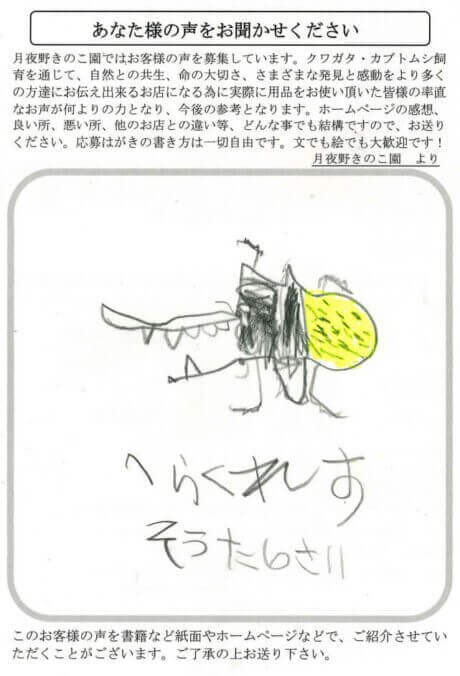 あなた様の声をお聞かせください
月夜野きのこ園ではお客様の声を募集しています。クワガタ・カブトムシ飼
育を通じて、自然との共生、命の大切さ、さまざまな発見と感動をより多く
の方達にお伝え出来るお店になる為に実際に用品をお使い頂いた皆様の率直
なお声が何よりの力となり、今後の参考となります。ホームページの感想、
良い所、悪い所、他のお店との違い等、どんな事でも結構ですので、お送り
ください。応募はがきの書き方は一切自由です。文でも絵でも大歓迎です！
月夜野きのこ園　より
へらくれす
そうた6さい
このお客様の声を書籍など紙面やホームページなどで、ご紹介させてい
ただくことがございます。ご了承の上お送り下さい。